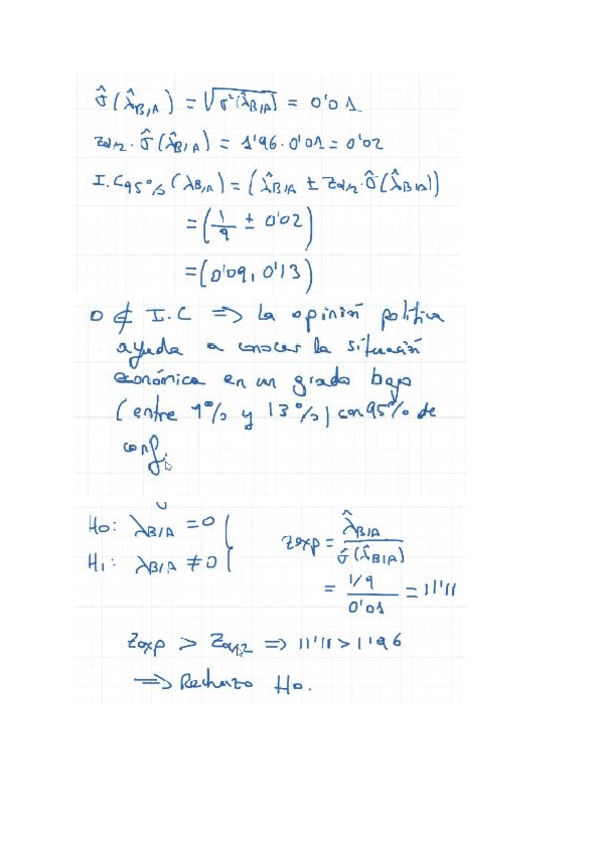 σ̂(λ̂B/A) = √σ²(λ̂B/A) = 0'01
zα/2 · σ̂(λ̂B/A) = 1'96 · 0'01 = 0'02
I.C95% (λB/A) = (λ̂B/A ± zα/2 · σ̂(λ̂B/A))
= (1/9 ± 0'02)
= (0'09, 0'13)
0 ∉ I.C => La opinión política
ayuda a conocer la situación
económica en un grado bajo
(entre 9% y 13%) con 95% de
conf.
H0: λB/A = 0
H1: λB/A ≠ 0
zexp = λ̂B/A / σ̂(λ̂B/A)
= 1/9 / 0'01 = 11'11
Zexp > Zα/2 => 11'11 > 1'96
=> Rechazo H0.